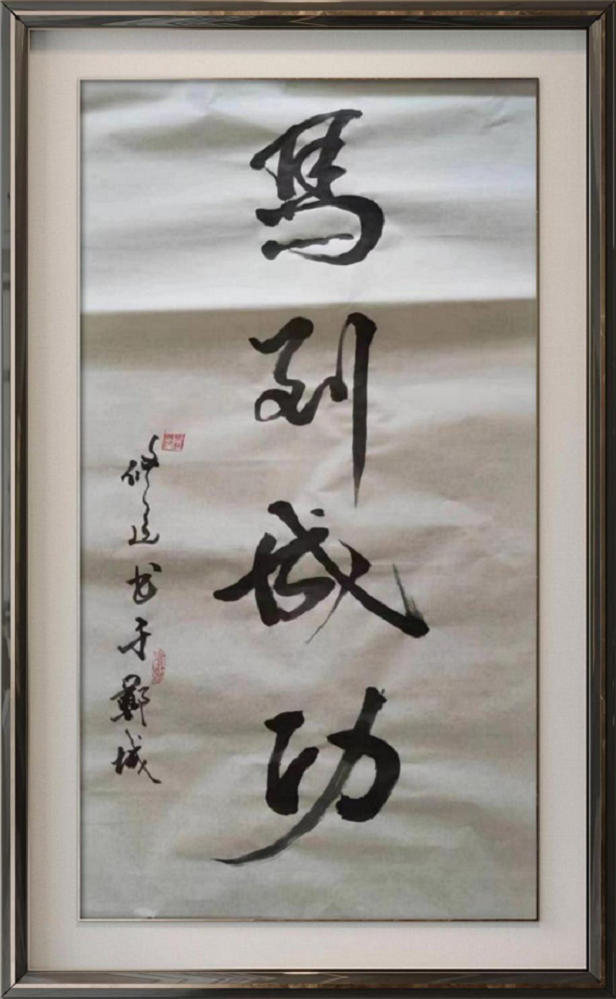 馬到成功
修远书于鄭城